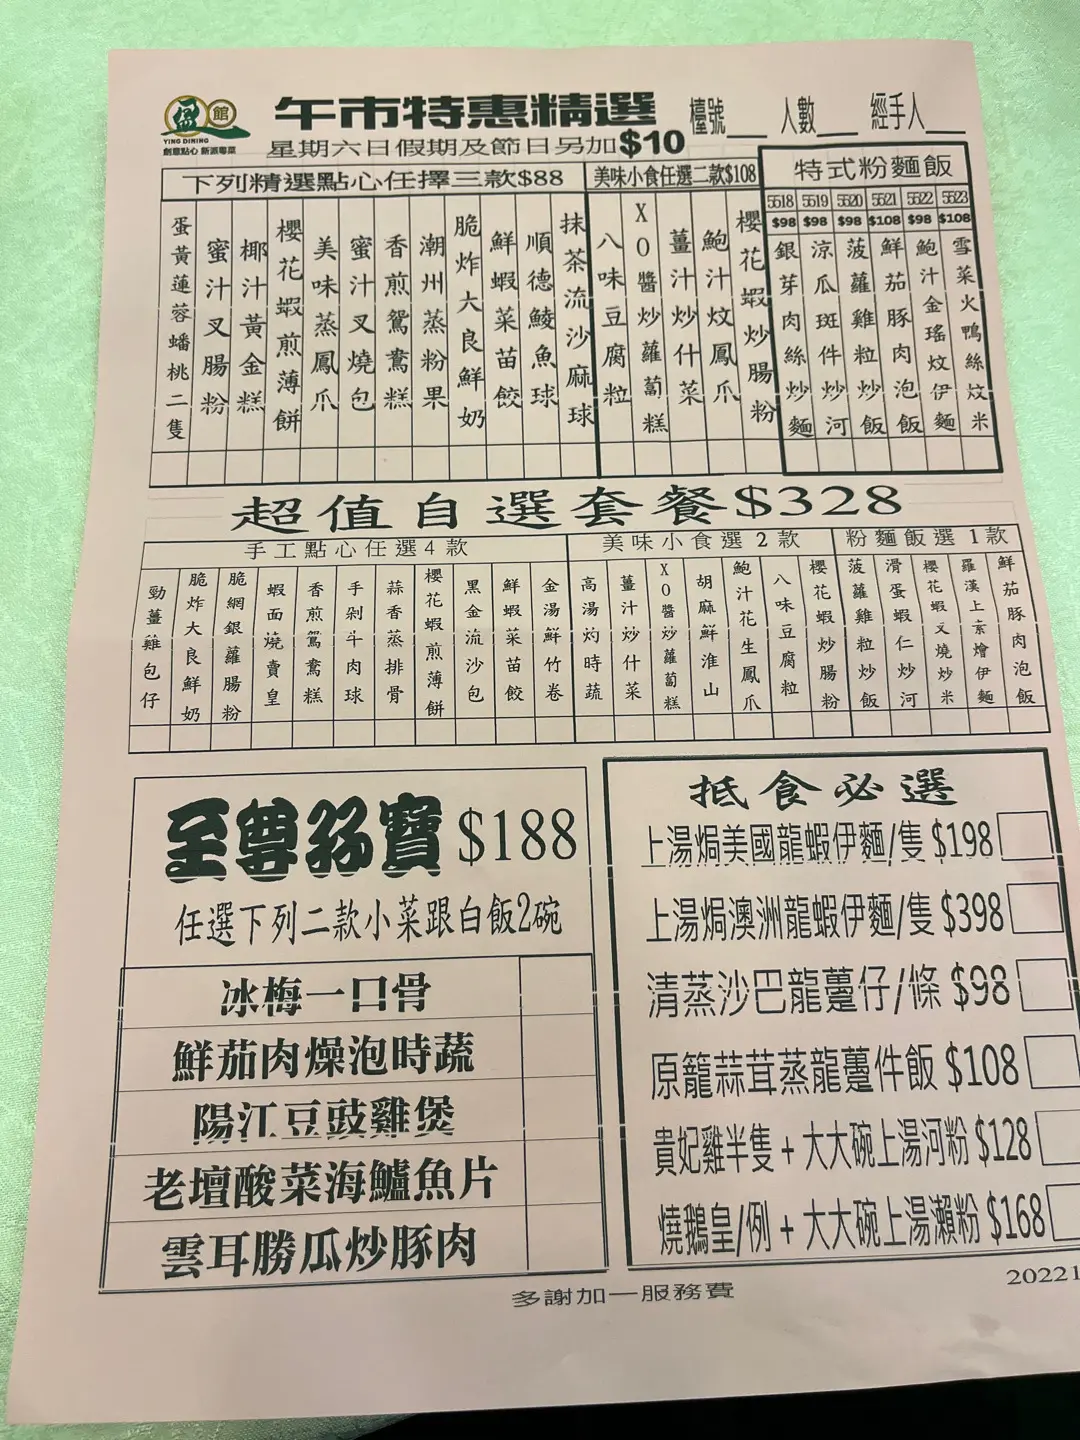 盈
館
YING DINING
創意點心 新派粵菜
午市特惠精選
檯號___ 人數___ 經手人___
星期六日假期及節日另加$10
下列精選點心任擇三款$88
蛋黃蓮蓉蟠桃二隻
蜜汁叉腸粉
椰汁黃金糕
櫻花蝦煎薄餅
美味蒸鳳爪
蜜汁叉燒包
香煎鴛鴦糕
潮州蒸粉果
脆炸大良鮮奶
鮮蝦菜苗餃
順德鯪魚球
抹茶流沙麻球
美味小食任選二款$108
八味豆腐粒
XO醬炒蘿蔔糕
薑汁炒什菜
鮑汁炆鳳爪
櫻花蝦炒腸粉
特式粉麵飯
5518 5519 5520 5521 5522 5523
$98 $98 $98 $108 $98 $108
銀芽肉絲炒麵
涼瓜斑件炒河
菠蘿雞粒炒飯
鮮茄豚肉泡飯
鮑汁金瑤炆伊麵
雪菜火鴨絲炆米
超值自選套餐$328
手工點心任選4款
勁薑雞包仔
脆炸大良鮮奶
脆網銀蘿腸粉
蝦面燒賣皇
香煎鴛鴦糕
手剁斗肉球
蒜香蒸排骨
櫻花蝦煎薄餅
黑金流沙包
鮮蝦菜苗餃
金湯鮮竹卷
美味小食選2款
高湯灼時蔬
薑汁炒什菜
XO醬炒蘿蔔糕
胡麻鮮淮山
鮑汁花生鳳爪
八味豆腐粒
櫻花蝦炒腸粉
粉麵飯選1款
菠蘿雞粒炒飯
滑蛋蝦仁炒河
櫻花蝦叉燒炒米
羅漢上素燴伊麵
鮮茄豚肉泡飯
至尊孖寶$188
任選下列二款小菜跟白飯2碗
冰梅一口骨
鮮茄肉燥泡時蔬
陽江豆豉雞煲
老壇酸菜海鱸魚片
雲耳勝瓜炒豚肉
抵食必選
上湯焗美國龍蝦伊麵/隻 $198
上湯焗澳洲龍蝦伊麵/隻 $398
清蒸沙巴龍躉仔/條 $98
原籠蒜茸蒸龍躉件飯 $108
貴妃雞半隻 + 大大碗上湯河粉 $128
燒鵝皇/例 + 大大碗上湯瀨粉 $168
多謝加一服務費
20221